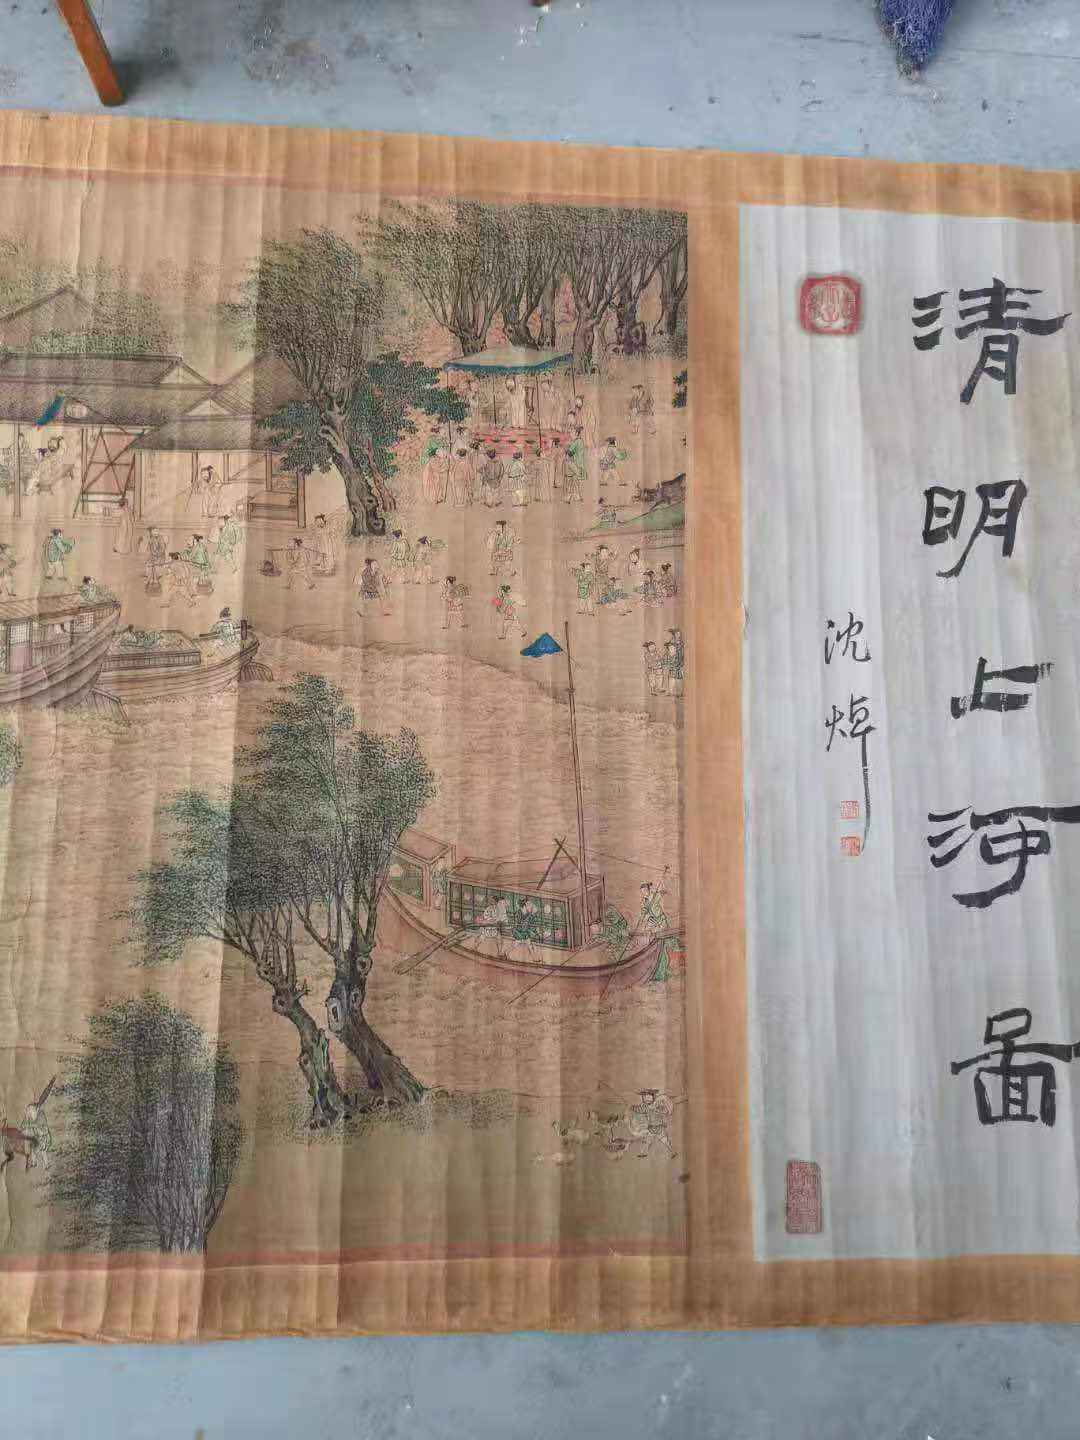 清明上河图
沈焯